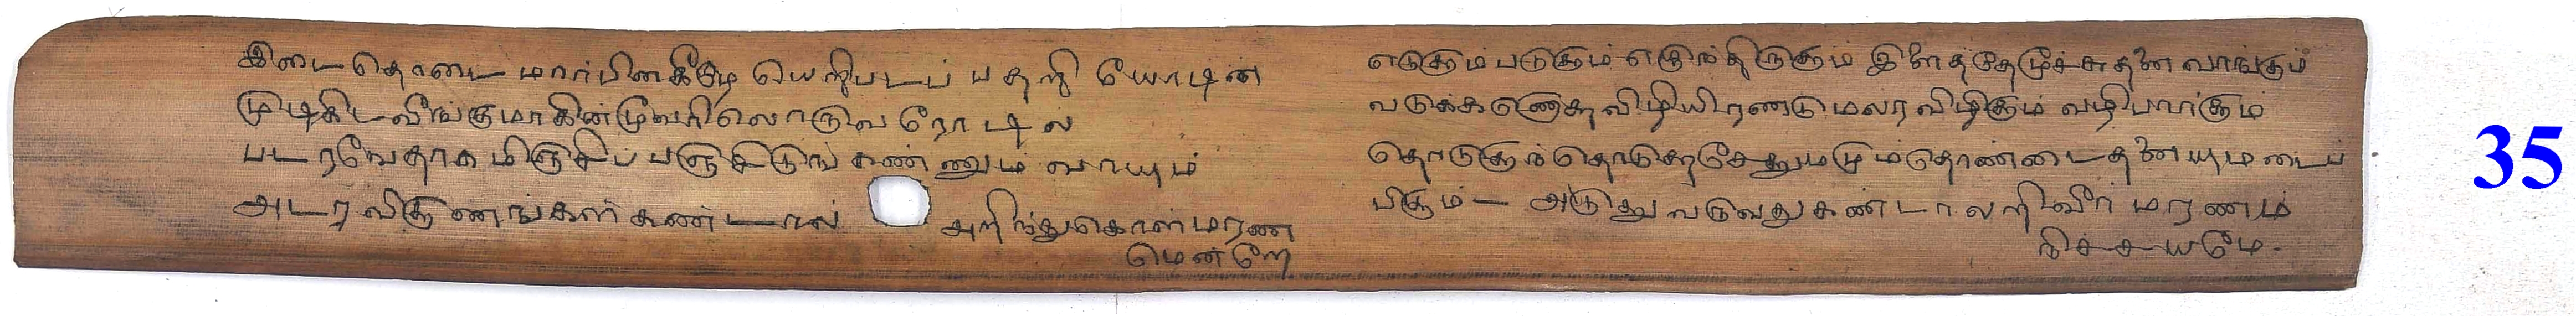 இடை தொடை மார்பினகீழே யெறிபடப் பதறி யோடின்
முடிகிட வீங்குமாகின் மூவரிலொருவ ரோடில்
படரவே தாக மிஞ்சிப் பஞ்சிடுங் கண்ணும் வாயும்
அடர விகுணங்கள் கண்டால் அறிந்துகொள் மரண
மென்றே
எடுகும் படுகும் எகுந்திருகும் இளைத்தே மூச்சுதனை வாங்கும்
வடுக்கணெனு விழியிரண்டு மலர விழிகும் வழிபார்கும்
தொடுகுந் தொடுகு சேதுமமும் தொண்டைதனையுமடைப்
பிகும் - அடுது வருவது கண்டாலறிவீர் மரணம்
நிச்சயமே.
35